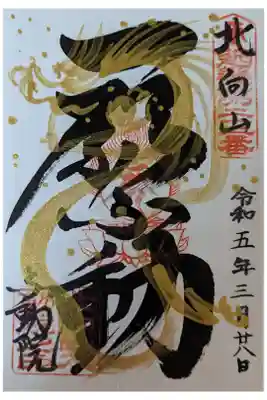 北向山
令和五年三月廿八日
一願不動
不動院